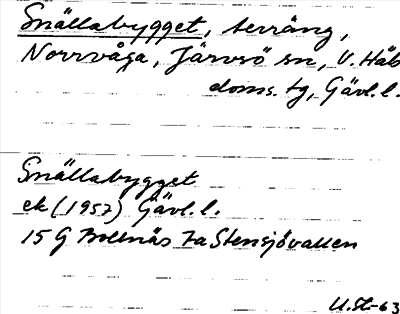 Snällabygget, terräng,
Norrvåga, Järvsö sn, V. Häl
doms. tg, Gävl. l.
Snällabygget
ek (1957) Gävl. l.
15 G Bollnäs 7a Stensjövallen
U.St-63